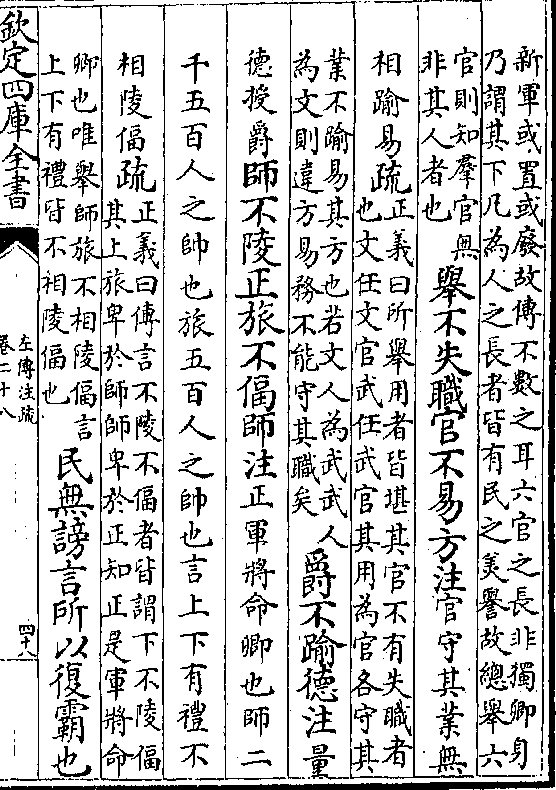 新軍或置或廢故傳不數之耳六官之長非獨卿身
乃謂其下凡為人之長者皆有民之美譽故總舉六
官則知羣官無
非其人者也
舉不失職官不易方注官守其業無
相踰易疏
正義曰所舉用者皆堪其官不有失職者
也文任文官武任武官其用為官各守其
業不踰易其方也若文人為武武人
為文則違方易務不能守其職矣
爵不踰德注量
德授爵師不陵正旅不偪師注正軍將命卿也師二
千五百人之帥也旅五百人之帥也言上下有禮不
相陵偪疏
正義曰傳言不陵不偪者皆謂下不陵偪
其上旅卑於師師卑於正知正是軍將命
卿也唯舉師旅不相陵偪言
上下有禮皆不相陵偪也
民無謗言所以復霸也
欽定四庫全書
左傳注疏
卷二十八
四十八